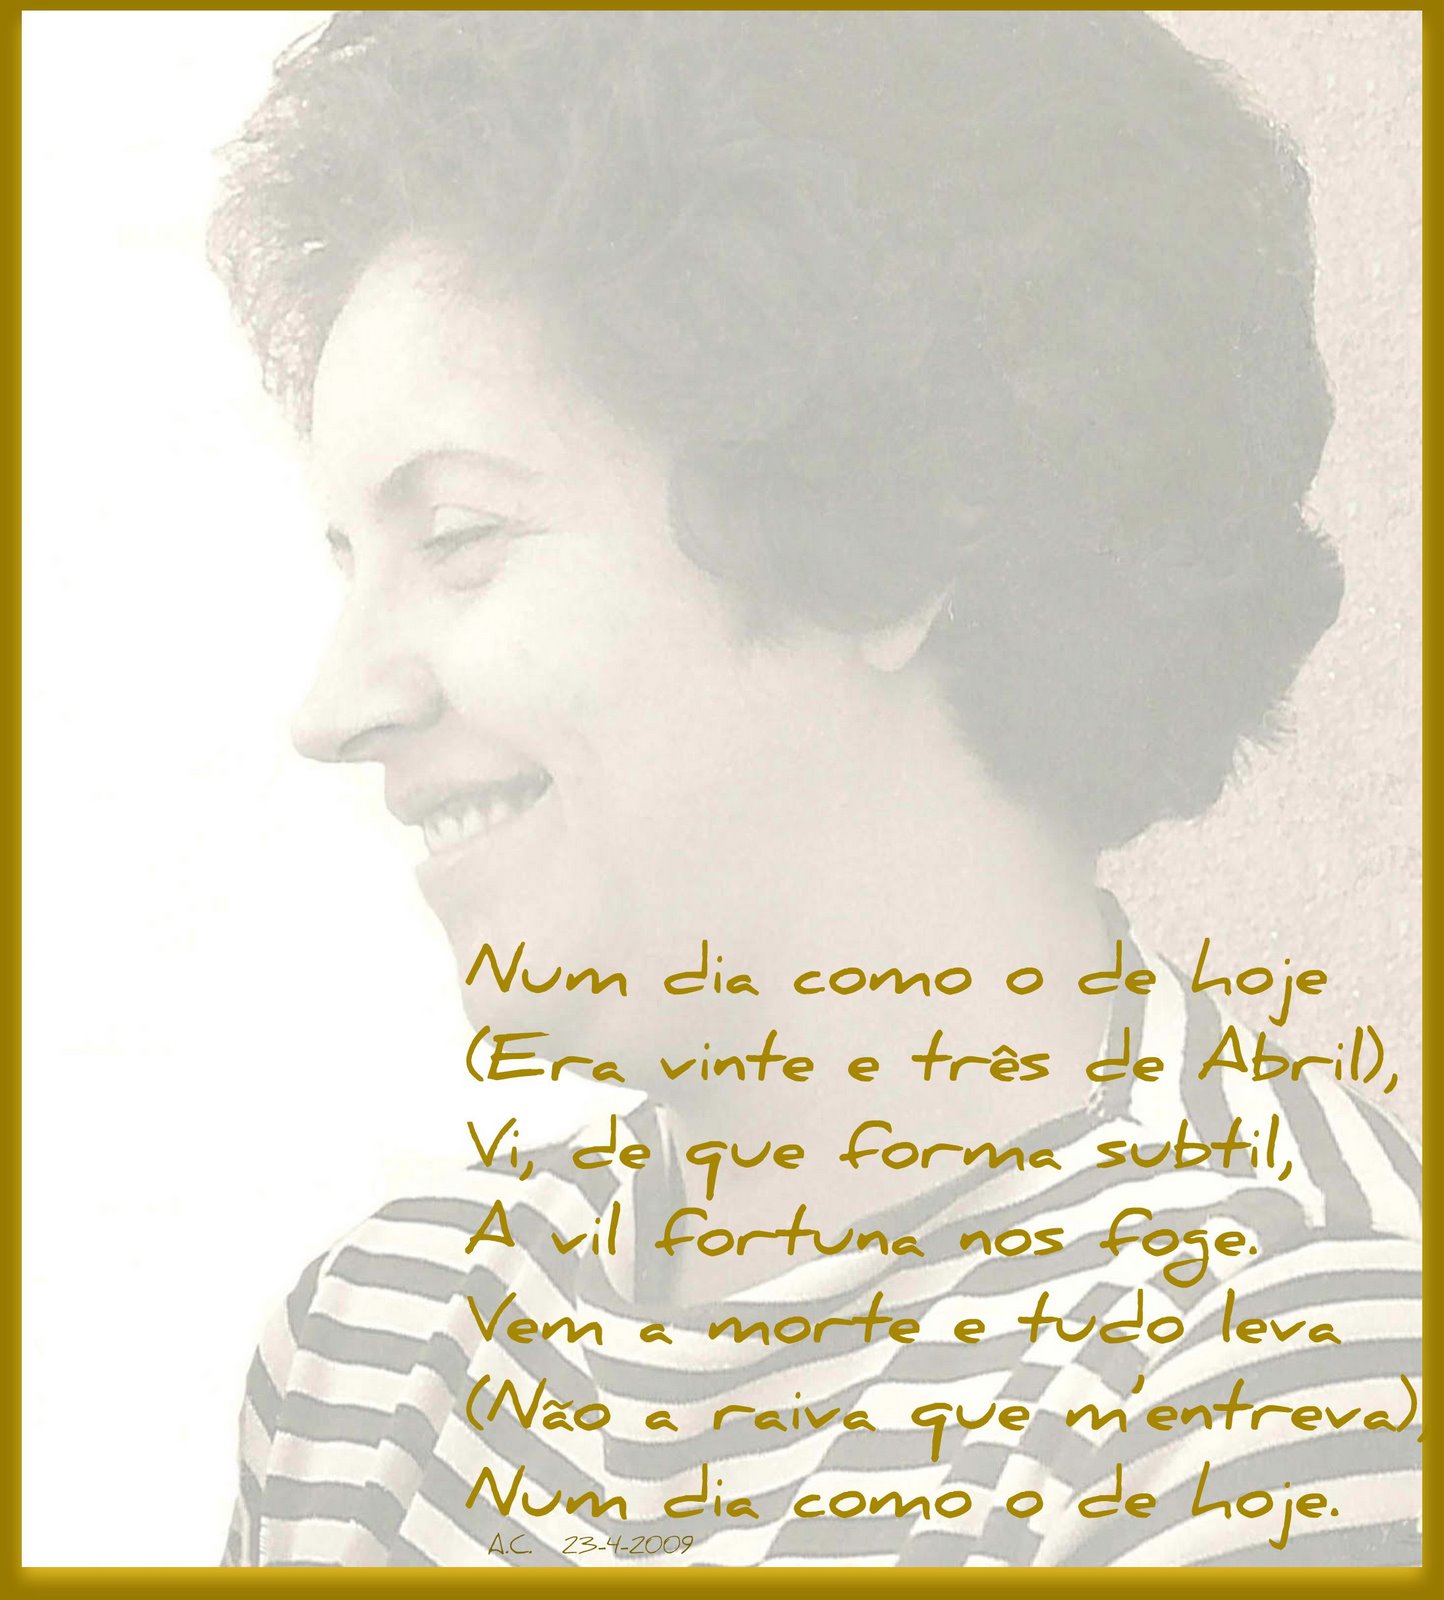 Num dia como o de hoje
(Era vinte e três de Abril),
Vi, de que forma subtil,
A vil fortuna nos foge.
Vem a morte e tudo leva
(Não a raiva que m'entreva),
Num dia como o de hoje.
A.C. 23-4-2009